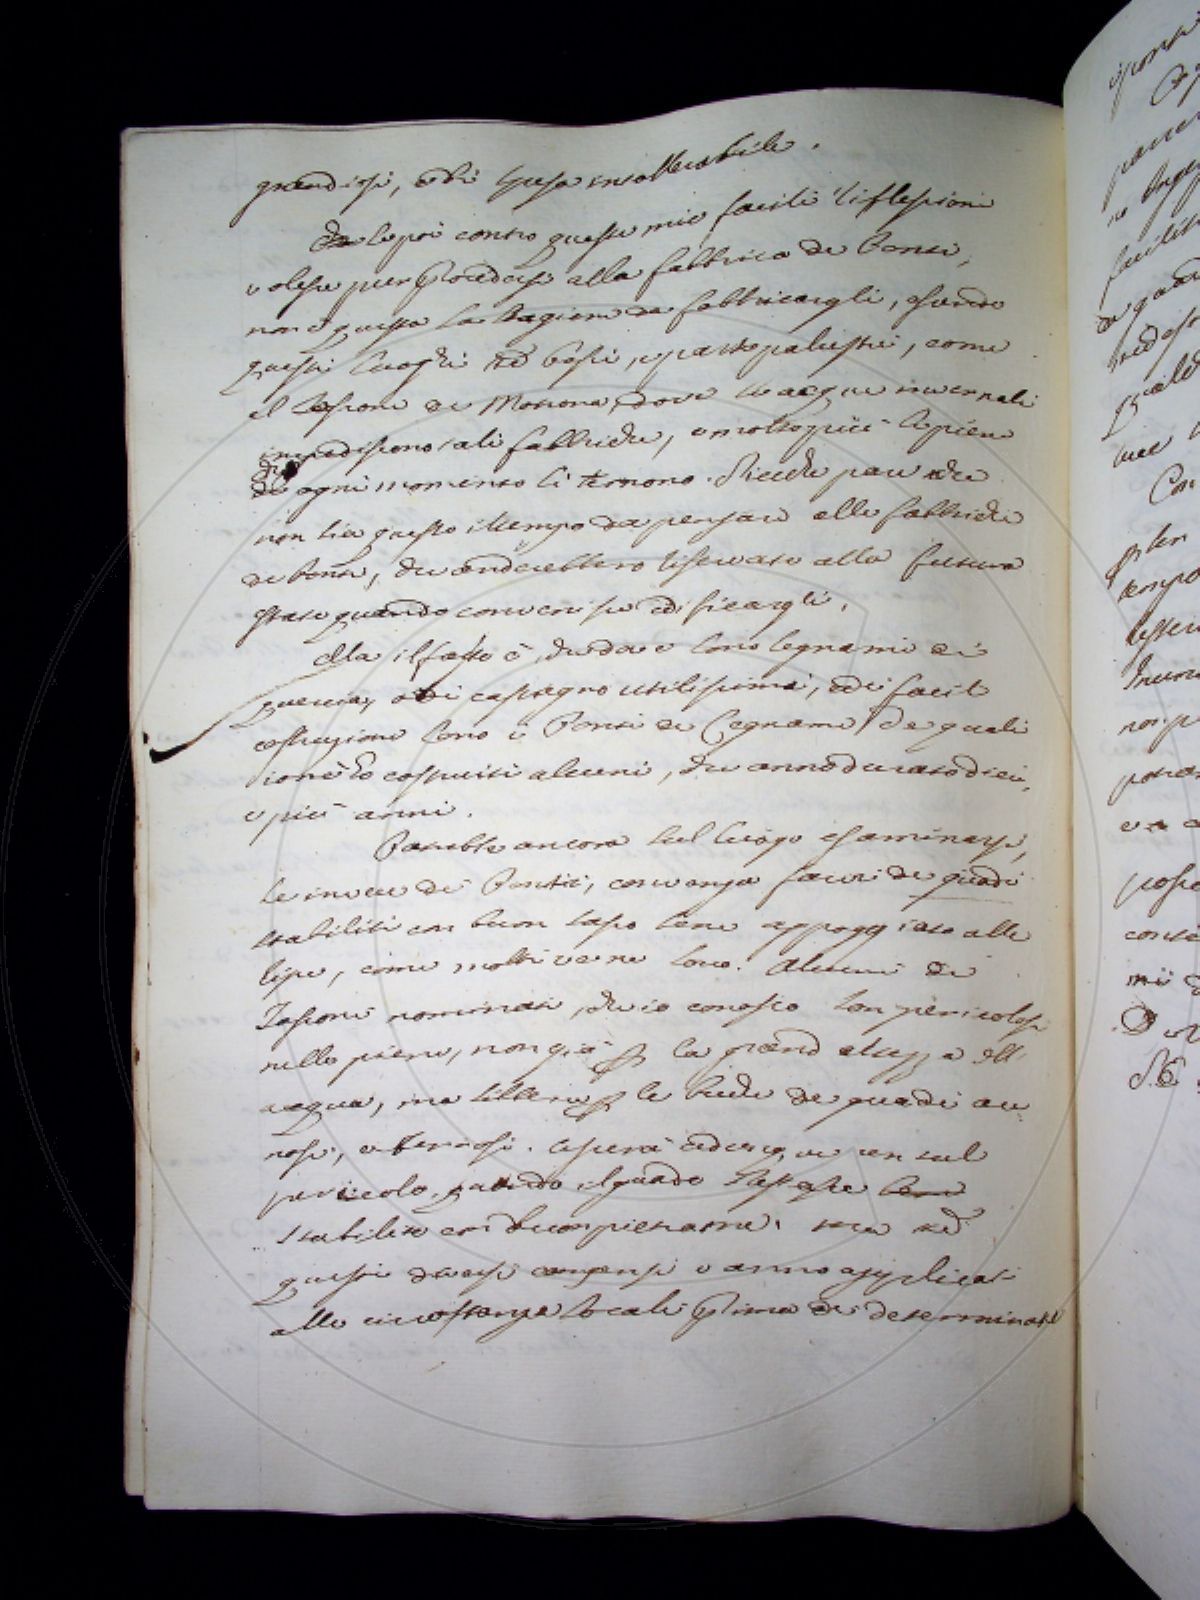 grandiosi, e di spesa intollerabile.
Se poi contro queste mie facili riflessioni
volesse pur procedersi alla fabbrica de Ponti,
non è questa la stagione da fabbricargli, essendo
questi luoghi bassi, e palustri, come
il di dove le acque invernali
impediscono tali fabbriche, e molto più le piene
che ogni momento si temono. Sicchè pare che
non sia questo il tempo da pensare alle fabbriche
de Ponti, che anderebbero riservate alla futura
state quando convenisse edificargli.
Ma il fatto è, che dove sono legnami di
quercia, o di castagno utilissimi, e di facile
costruzione sono i Ponti di Legname, de quali
io ne ho costruiti alcuni, che anno durato dieci,
e più anni.
Sarebbe ancora sul luogo esaminarsi,
se in vece di Ponti, convenga farvi de guadi
stabiliti con buon sasso bene appoggiato alle
ripe, come molti ve ne sono. Alcuni de
nominati, che io conosco son pericolosi
nelle piene, non già per la grand altezza dell
acqua, ma sibbene per le buche de guadi are
nosi, e terrosi. Cesserà adunque un tal
pericolo, quando il guado restasse
stabilito con buon pietrame. ma
questi diversi compensi vanno applicati
alle circostanze locali prima di determinare